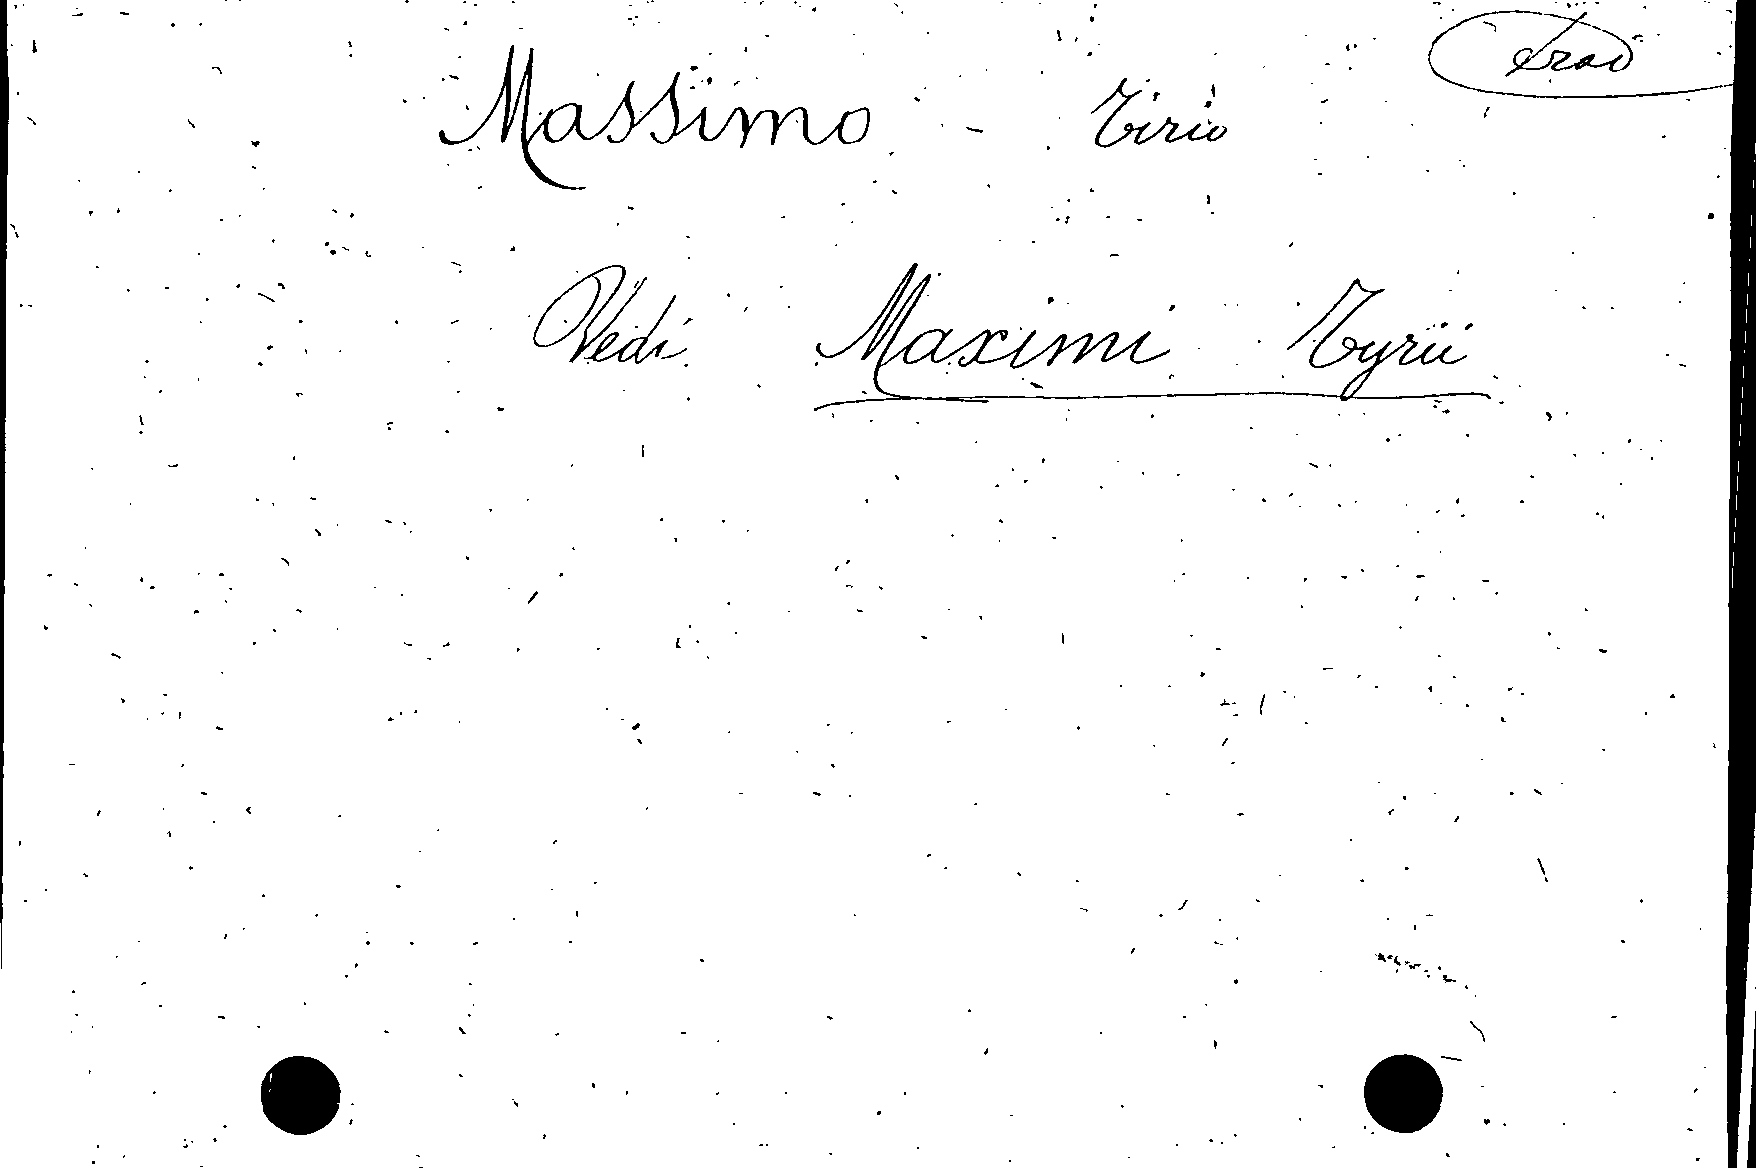 Massimo - Tirio
Vedi Maximi Tyrii